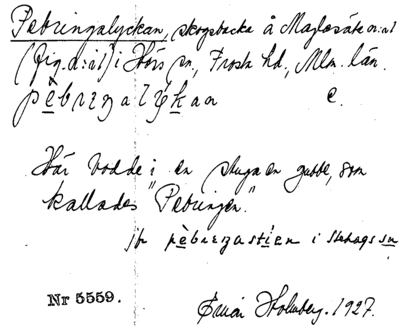 Petringalyckan, skogsbacke å Maglasäte n:o 1
(fig.d:il) i Hörs sn, Frosta hd, Mlm. län.
pèbrɩŋalỳkan e.
Här bodde i en stuga en gubbe, som
kallades "Petringen".
jfr pèbrɩŋastíɛn i Stehags sn
Nr 5559.
Ingvar Holmberg. 1927.